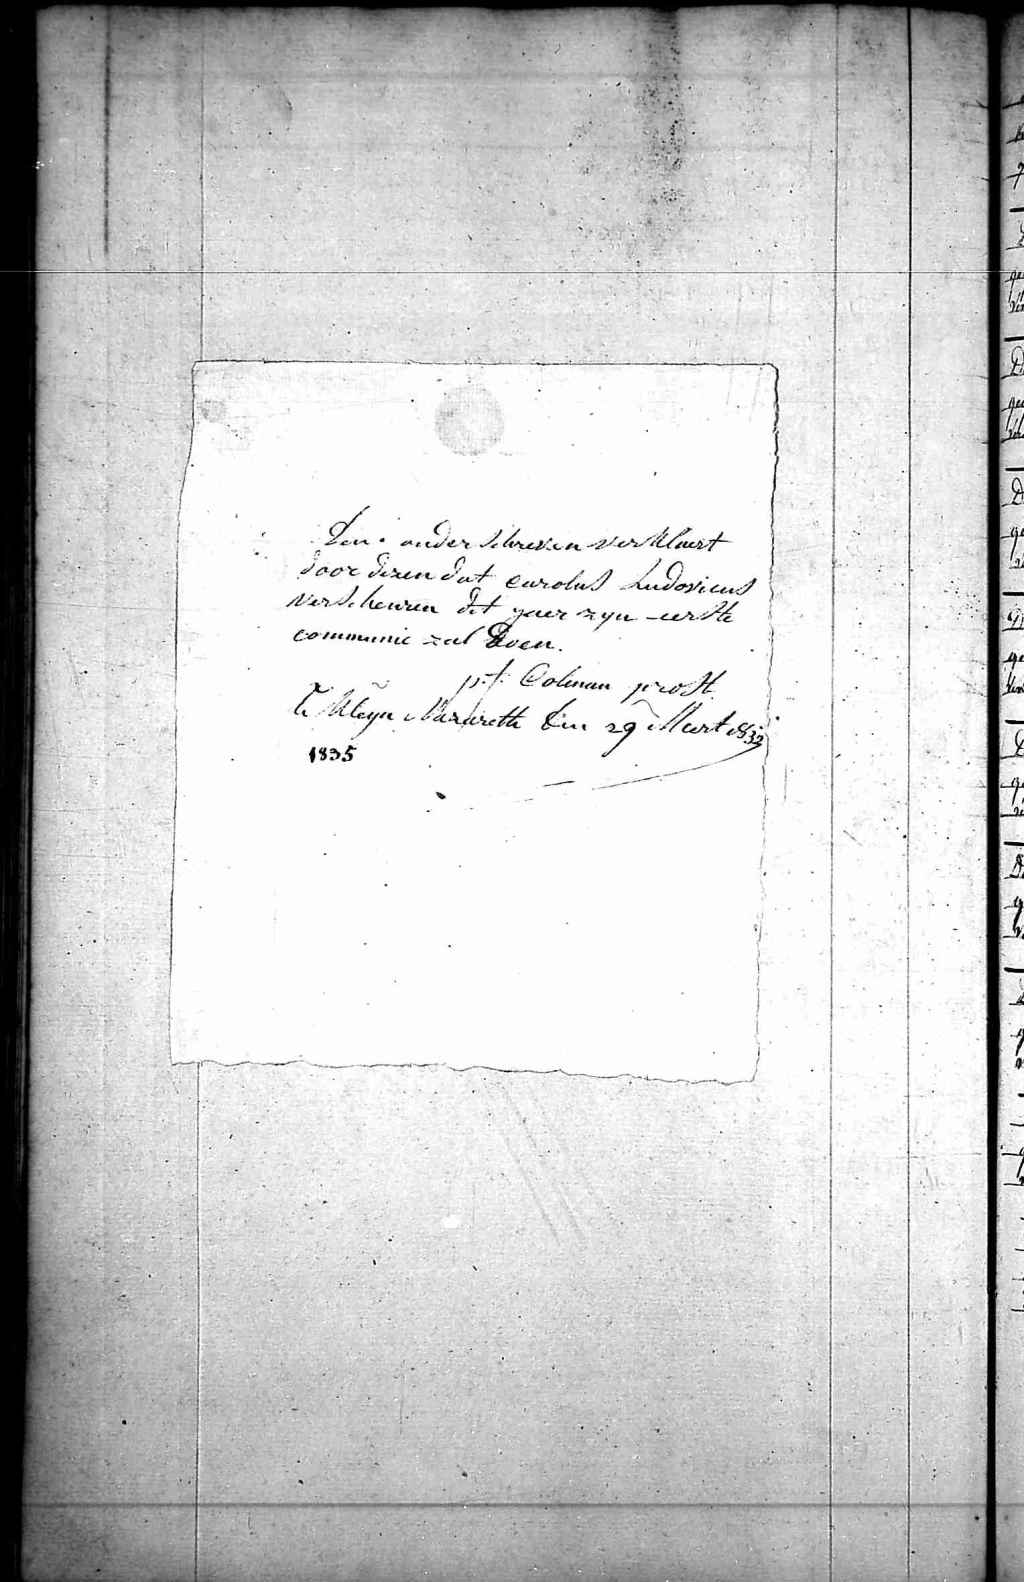 Den onderschreven verklaert
door dezen dat carolus Ludovicus
verscheuren dit jaer zyn eerste
communie zal Doen.
p. f. Colman prost.
te Kleyn Nazareth den 29 Meert 1832
1835